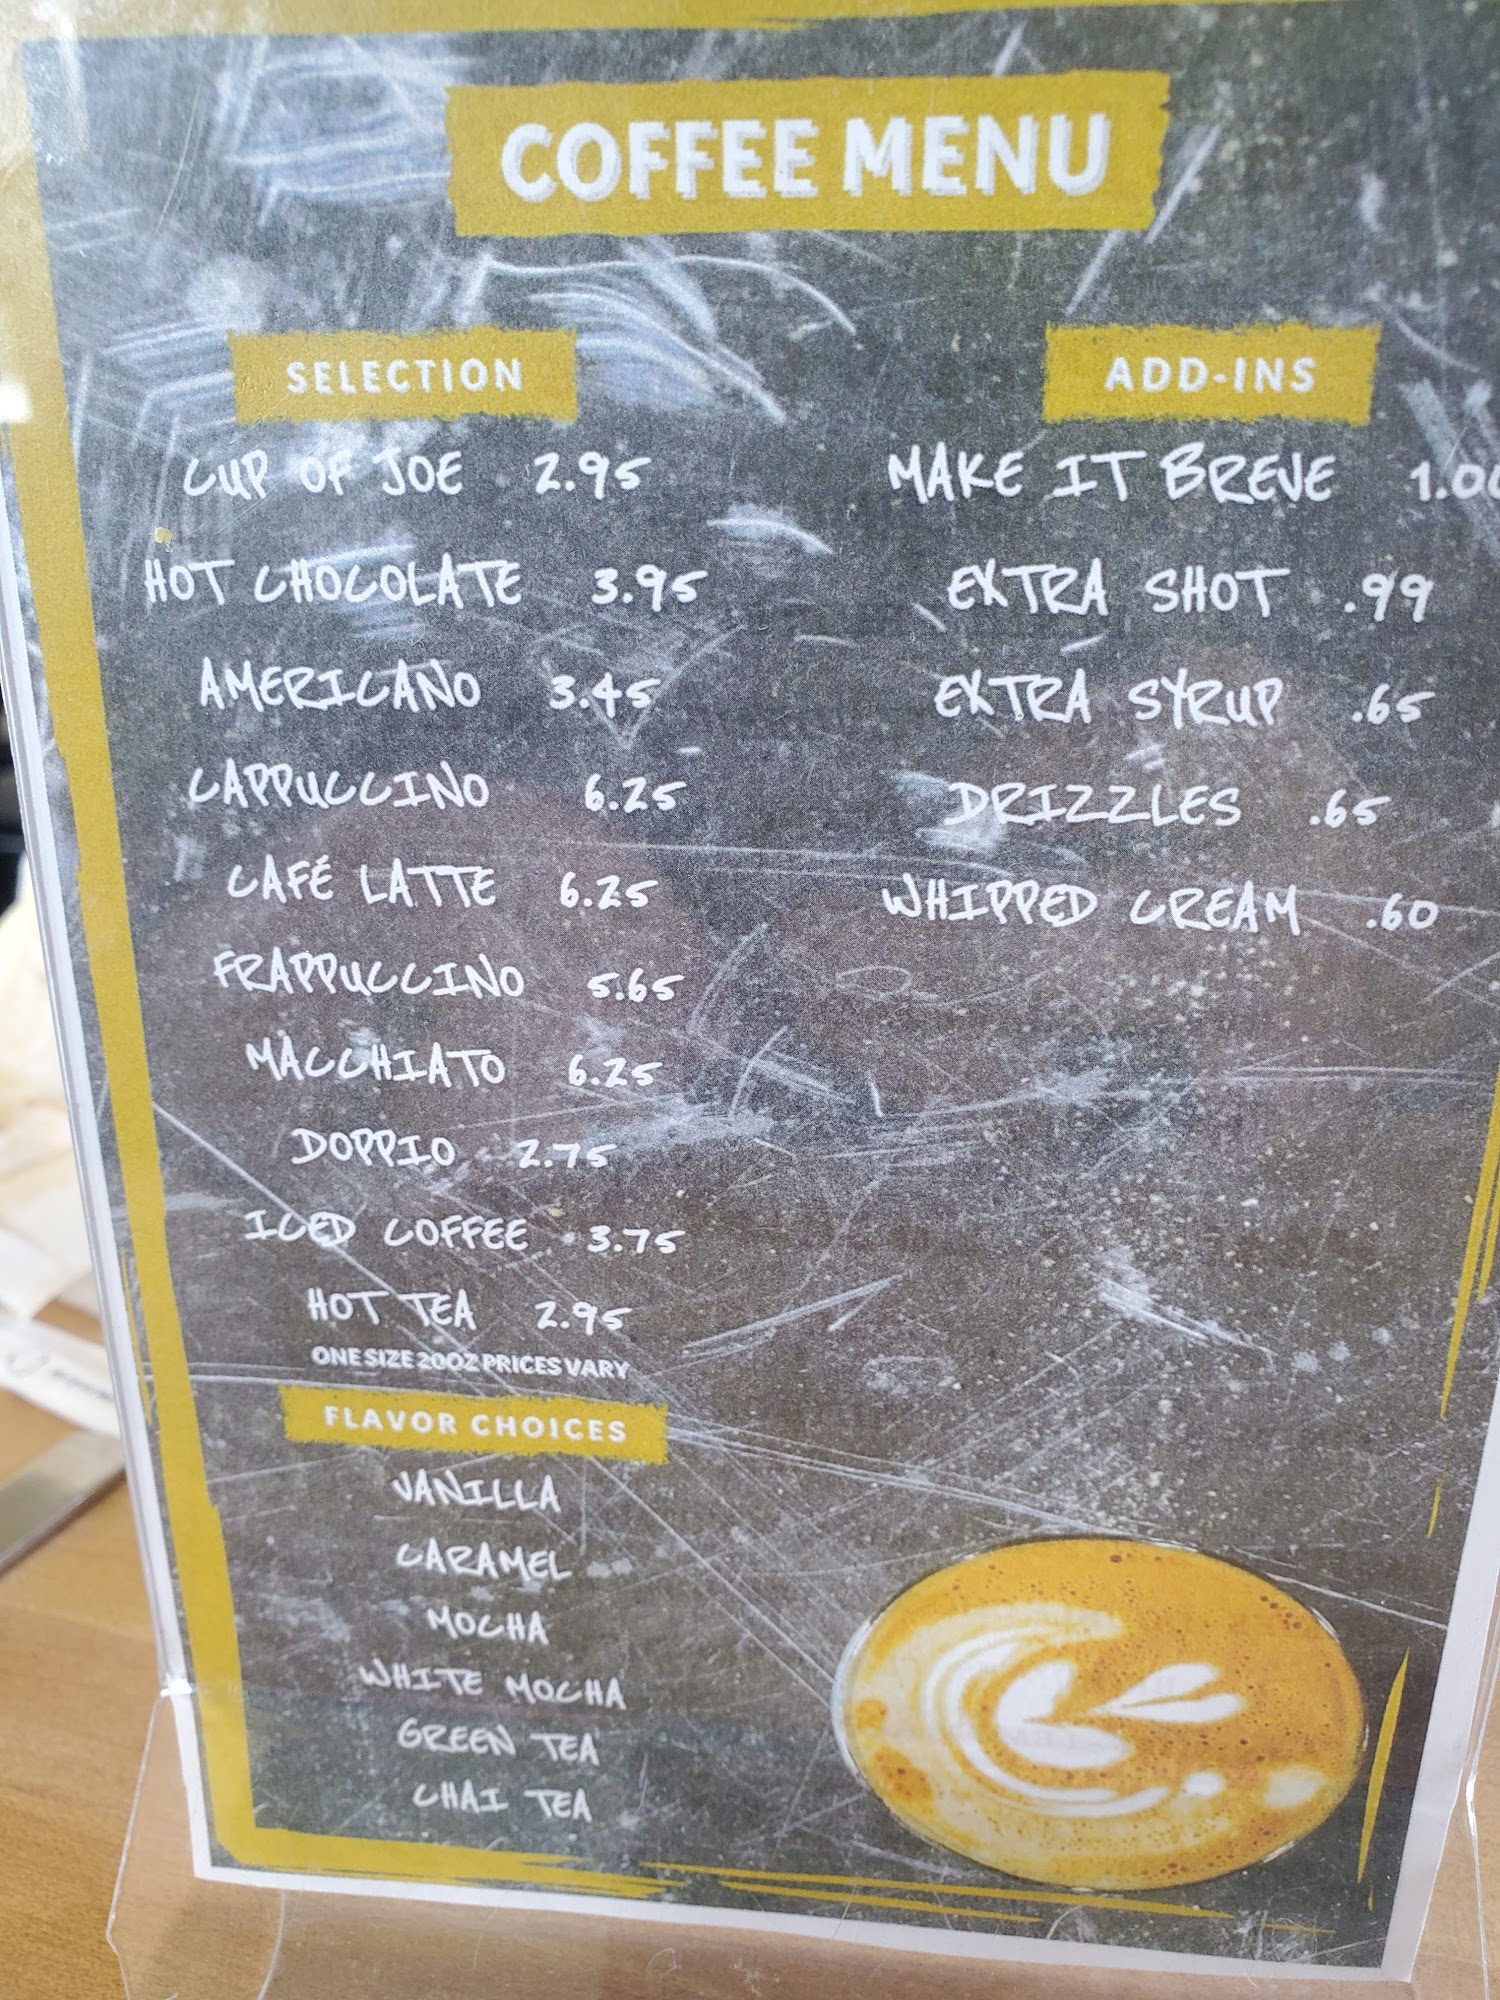 COFFEE MENU
SELECTION
CUP OF JOE 2.95
HOT CHOCOLATE 3.95
AMERICANO 3.45
CAPPUCCINO 6.25
CAFÉ LATTE 6.25
FRAPPUCCINO 5.65
MACCHIATO 6.25
DOPPIO 2.75
ICED COFFEE 3.75
HOT TEA 2.95
ONE SIZE 20OZ PRICES VARY
FLAVOR CHOICES
VANILLA
CARAMEL
MOCHA
WHITE MOCHA
GREEN TEA
CHAI TEA
ADD-INS
MAKE IT BREVE 1.00
EXTRA SHOT .99
EXTRA SYRUP .65
DRIZZLES .65
WHIPPED CREAM .60